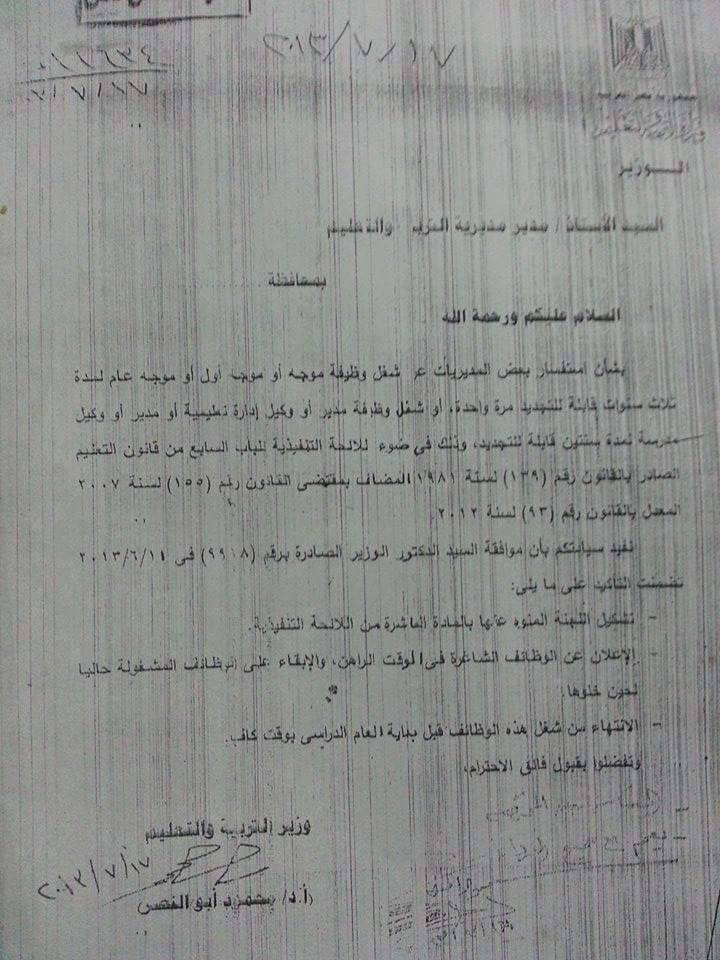 ٢٠١٣/٧/١٧
١١٦٣٤
٣/٧/١٧
الـــوزير
السيد الأستاذ / مدير مديرية التربية والتعليم
بمحافظة
السلام عليكم ورحمة الله
بشأن استفسار بعض المديريات عن شغل وظيفة موجه أو موجه أول أو موجه عام لمدة
ثلاث سنوات قابلة للتجديد مرة واحدة، أو شغل وظيفة مدير أو وكيل إدارة تعليمية أو مدير أو وكيل
مدرسة لمدة سنتين قابلة للتجديد، وذلك في ضوء للائحة التنفيذية للباب السابع من قانون التعليم
الصادر بالقانون رقم (١٣٩) لسنة ١٩٨١ المضاف بمقتضى القانون رقم (١٥٥) لسنة ٢٠٠٧
المعدل بالقانون رقم (٩٣) لسنة ٢٠١٢.
نفيد سيادتكم بأن موافقة السيد الدكتور الوزير الصادرة برقم في ٢٠١٣/٦/١١
تضمنت التأكيد على ما يلى:
- تشكيل اللجنة المنوه عنها بالمادة العاشرة من اللائحة التنفيذية.
- الإعلان عن الوظائف الشاغرة فى الوقت الراهن، والإبقاء على الوظائف المشغولة حاليا
لحين خلوها.
- الانتهاء من شغل هذه الوظائف قبل بداية العام الدراسى بوقت كاف.
وتفضلوا بقبول فائق الاحترام،
وزير التربية والتعليم
٢٠١٣/٧/١٧
(أ.د/ إبراهيم أبو النصر)